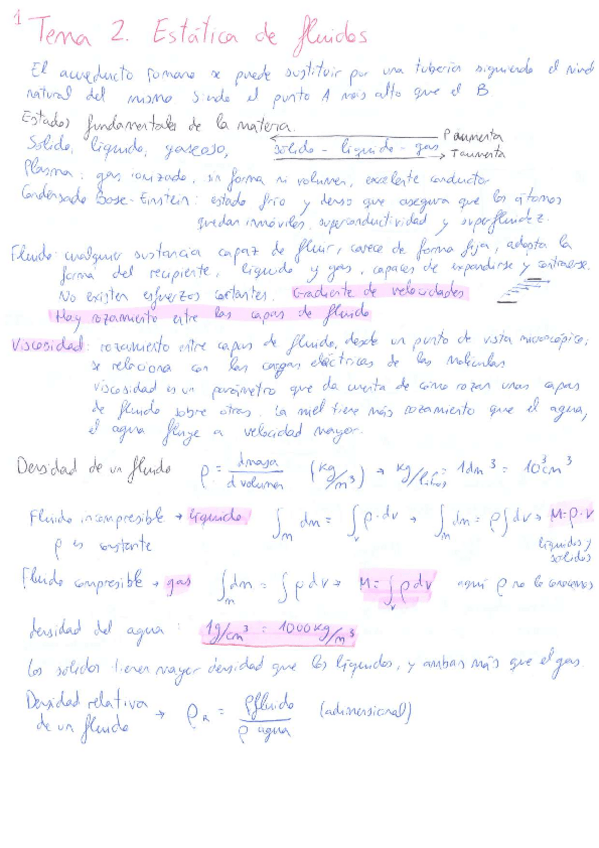 1
Tema 2. Estática de fluidos
El acueducto romano se puede sustituir por una tubería siguiendo el nivel
natural del mismo siendo el punto A más alto que el B.
Estados fundamentales de la materia.
P aumenta
Sólido, líquido, gaseoso, sólido - líquido - gas
T aumenta
Plasma: gas ionizado, sin forma ni volumen, excelente conductor
Condensado Bose-Einstein: estado frío y denso que asegura que los átomos
quedan inmóviles, superconductividad y superfluidez.
Fluido: cualquier sustancia capaz de fluir, carece de forma fija, adopta la
forma del recipiente, líquido y gas, capaces de expandirse y contraerse.
No existen esfuerzos cortantes. Gradiente de velocidades
Hay rozamiento entre las capas de fluido
Viscosidad: rozamiento entre capas de fluido, desde un punto de vista microscópico,
se relaciona con las cargas eléctricas de las moléculas
viscosidad es un parámetro que da cuenta de cómo rozan unas capas
de fluido sobre otras. La miel tiene más rozamiento que el agua,
el agua fluye a velocidad mayor.
Densidad de un fluido ρ = dmasa / dvolumen (kg/m³) → kg/litros = 1dm³ = 10³cm³
Fluido incompresible → líquido, ∫m dm = ∫v ρ·dv → ∫m dm = ρ∫dv → M=ρ·v
ρ es constante líquidos y
sólidos
Fluido compresible → gas ∫m dm = ∫ρdv → M=∫v ρdv aquí ρ no lo conocemos
densidad del agua: 1g/cm³ = 1000kg/m³
Los sólidos tienen mayor densidad que los líquidos, y ambas más que el gas.
Densidad relativa
de un fluido → ρR = ρfluido / ρ agua (adimensional)